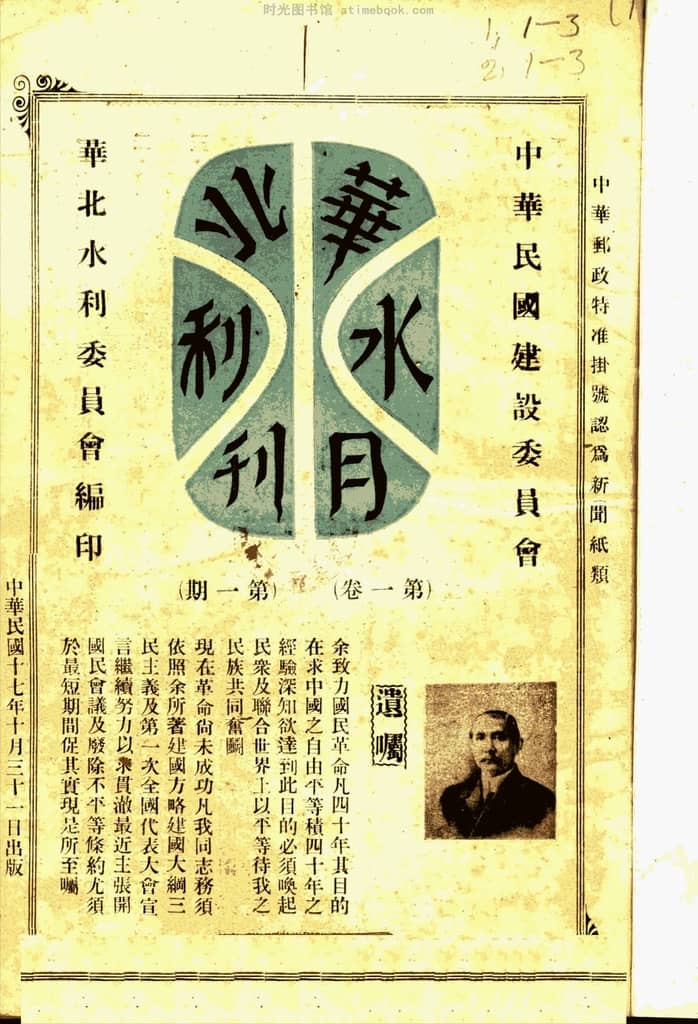 时光图书馆 atimebook.com
1, 1-3
2, 1-3
(1
中華郵政特准掛號認為新聞紙類
中華民國建設委員會
華北水利月刊
華北水利委員會編印
(第一卷) (第一期)
遺囑
余致力國民革命凡四十年其目的
在求中國之自由平等積四十年之
經驗深知欲達到此目的必須喚起
民衆及聯合世界上以平等待我之
民族共同奮鬭
現在革命尚未成功凡我同志務須
依照余所著建國方略建國大綱三
民主義及第一次全國代表大會宣
言繼續努力以求貫澈最近主張開
國民會議及廢除不平等條約尤須
於最短期間促其實現是所至囑
中華民國十七年十月三十一日出版